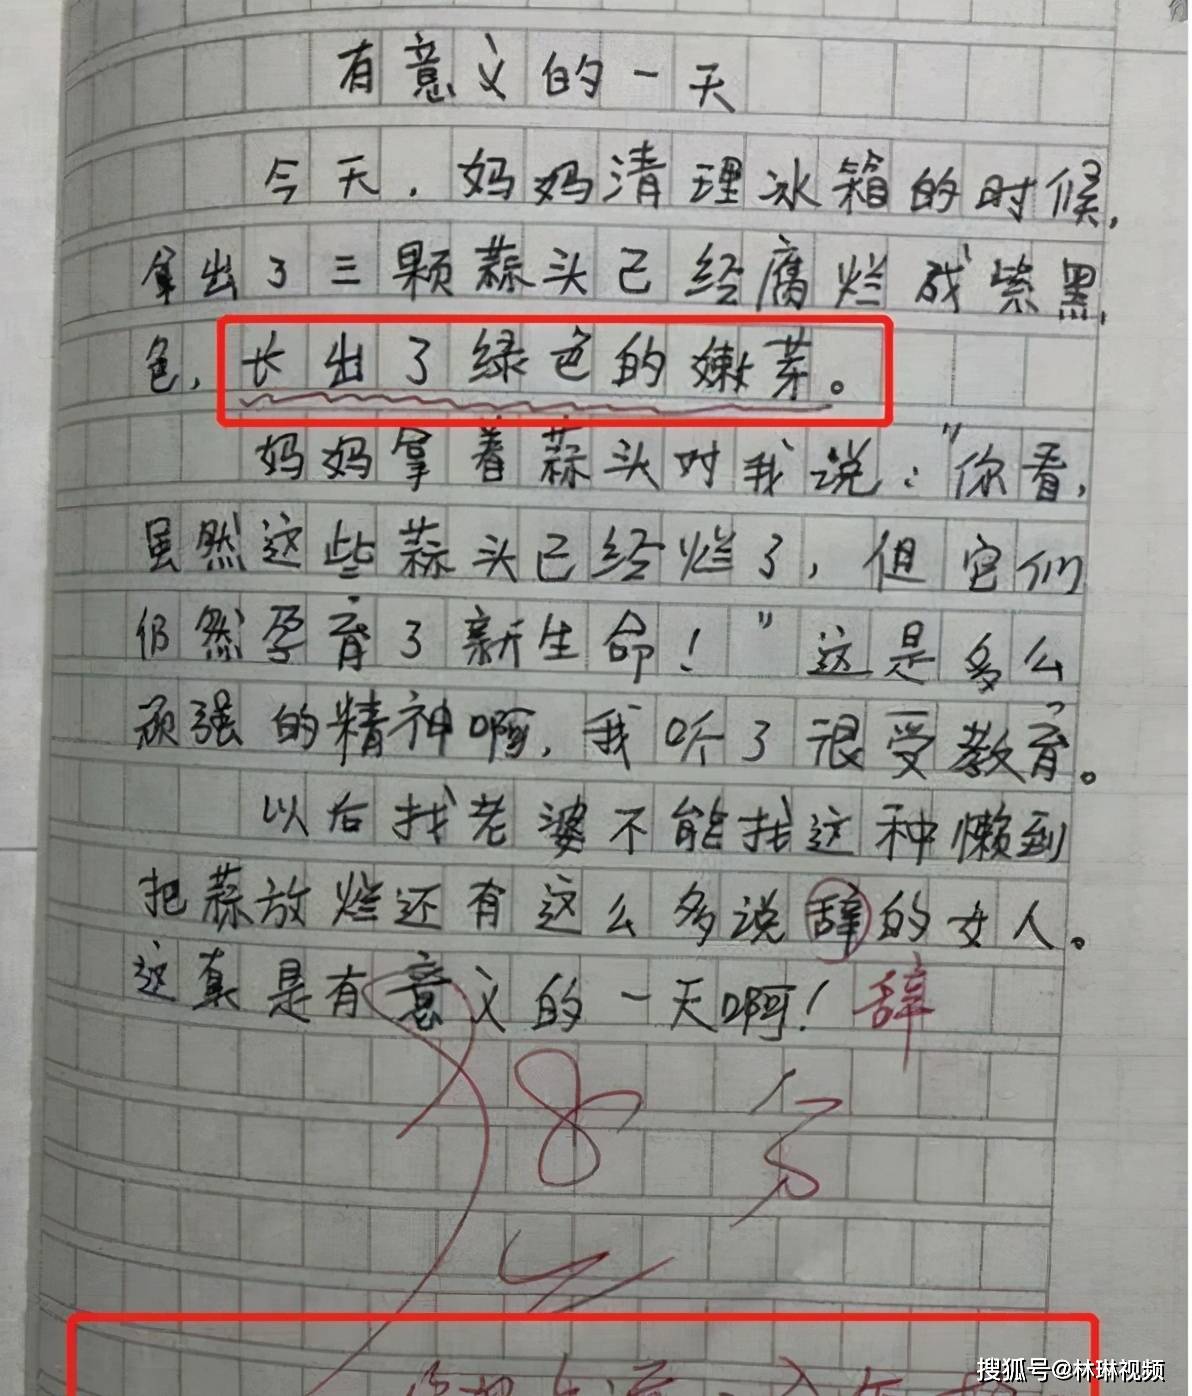 有意义的一天
今天,妈妈清理冰箱的时候,
拿出了三颗蒜头已经腐烂成紫黑
色,长出了绿色的嫩芽。
妈妈拿着蒜头对我说:"你看,
虽然这些蒜头已经烂了,但它们
仍然孕育了新生命!"这是多么
顽强的精神啊,我听了很受教育。
以后找老婆不能找这种懒到
把蒜放烂还有这么多说辞的女人。
这真是有意义的一天啊!辞
搜狐号@林琳视频